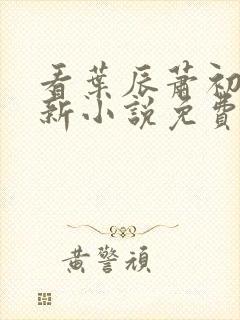 看葉辰蕭初
新小說免費
黄警頑